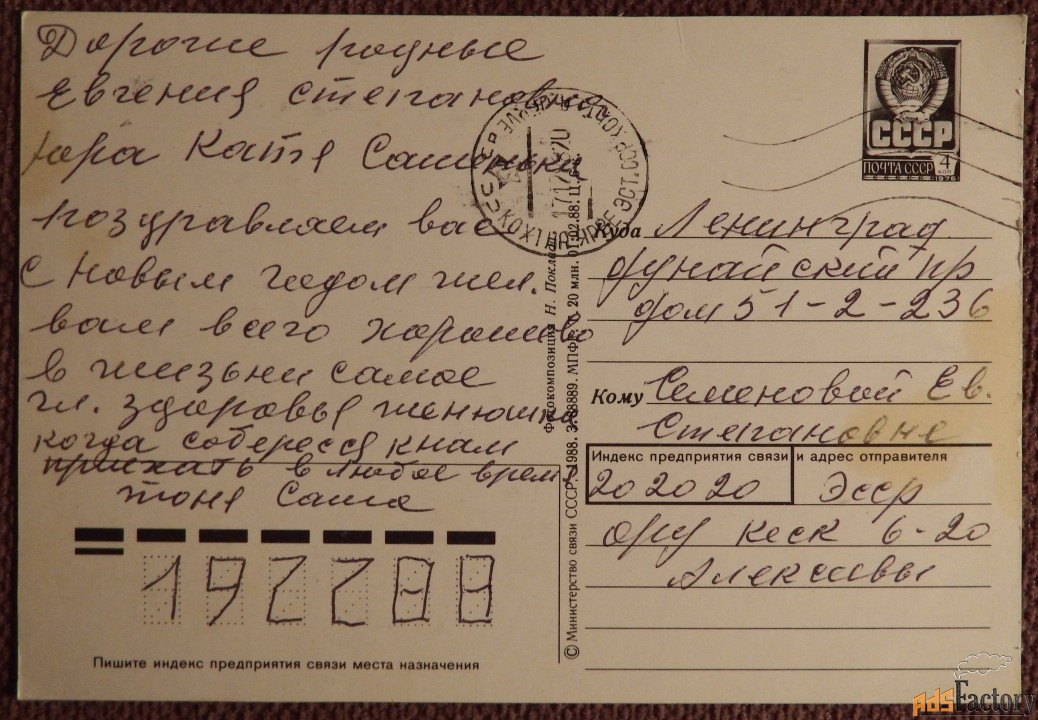 Дорогие родные
Евгения Степановна
Юра Катя Сашенька
поздравляем вас
с Новым годом жел.
вам всего харошево
в жизьни самое
гл. здоровья женюшка
когда собересся к нам
приехать в любое время
тоня Саша
ПОЧТА СССР
4
КОП
1976
СССР
Куда Ленинград
дунайский пр
дом 51-2-236
Кому Семеновой Ев.
Степановне
Индекс предприятия связи и адрес отправителя
202020 Эсср
ору кеск 6-20
Алексеевы
192288
Пишите индекс предприятия связи места назначения
© Министерство связи СССР. 1988. З. 88889. МПФГ. 20 млн. 01.02.88. Ц.
Фотокомпозиция Н. Поклад
KOHTLA-JÄRVE
ЭСТ.ССР КОХТЛА-ЯРВЕ
AdsFactory